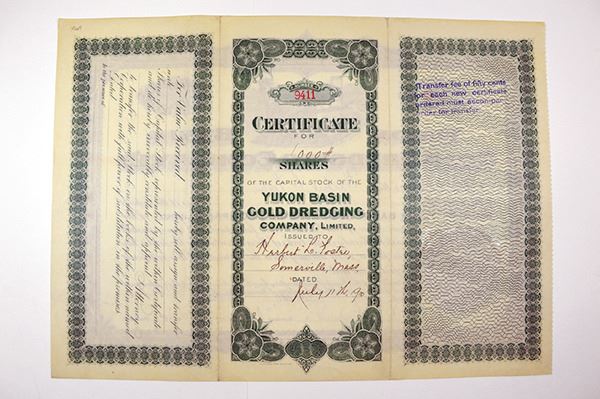 For Value Received hereby sell, assign and transfer
unto
Shares of the Capital Stock represented by the within Certificate
and do hereby irrevocably constitute and appoint
Attorney
to transfer the said Stock on the books of the within named
Corporation with full power of substitution in the premises
Dated
In the presence of
NUMBER
9411
CERTIFICATE
FOR
SHARES
OF THE CAPITAL STOCK OF THE
YUKON BASIN
GOLD DREDGING
COMPANY, LIMITED,
ISSUED TO
Herbert L. Foster,
Somerville, Mass
DATED
July 11th, 190
Transfer fee of fifty cents
for each new certificate
entered must accom-
for transfer.